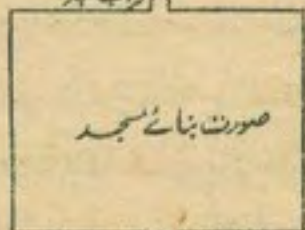 صورت بنائے مسجد